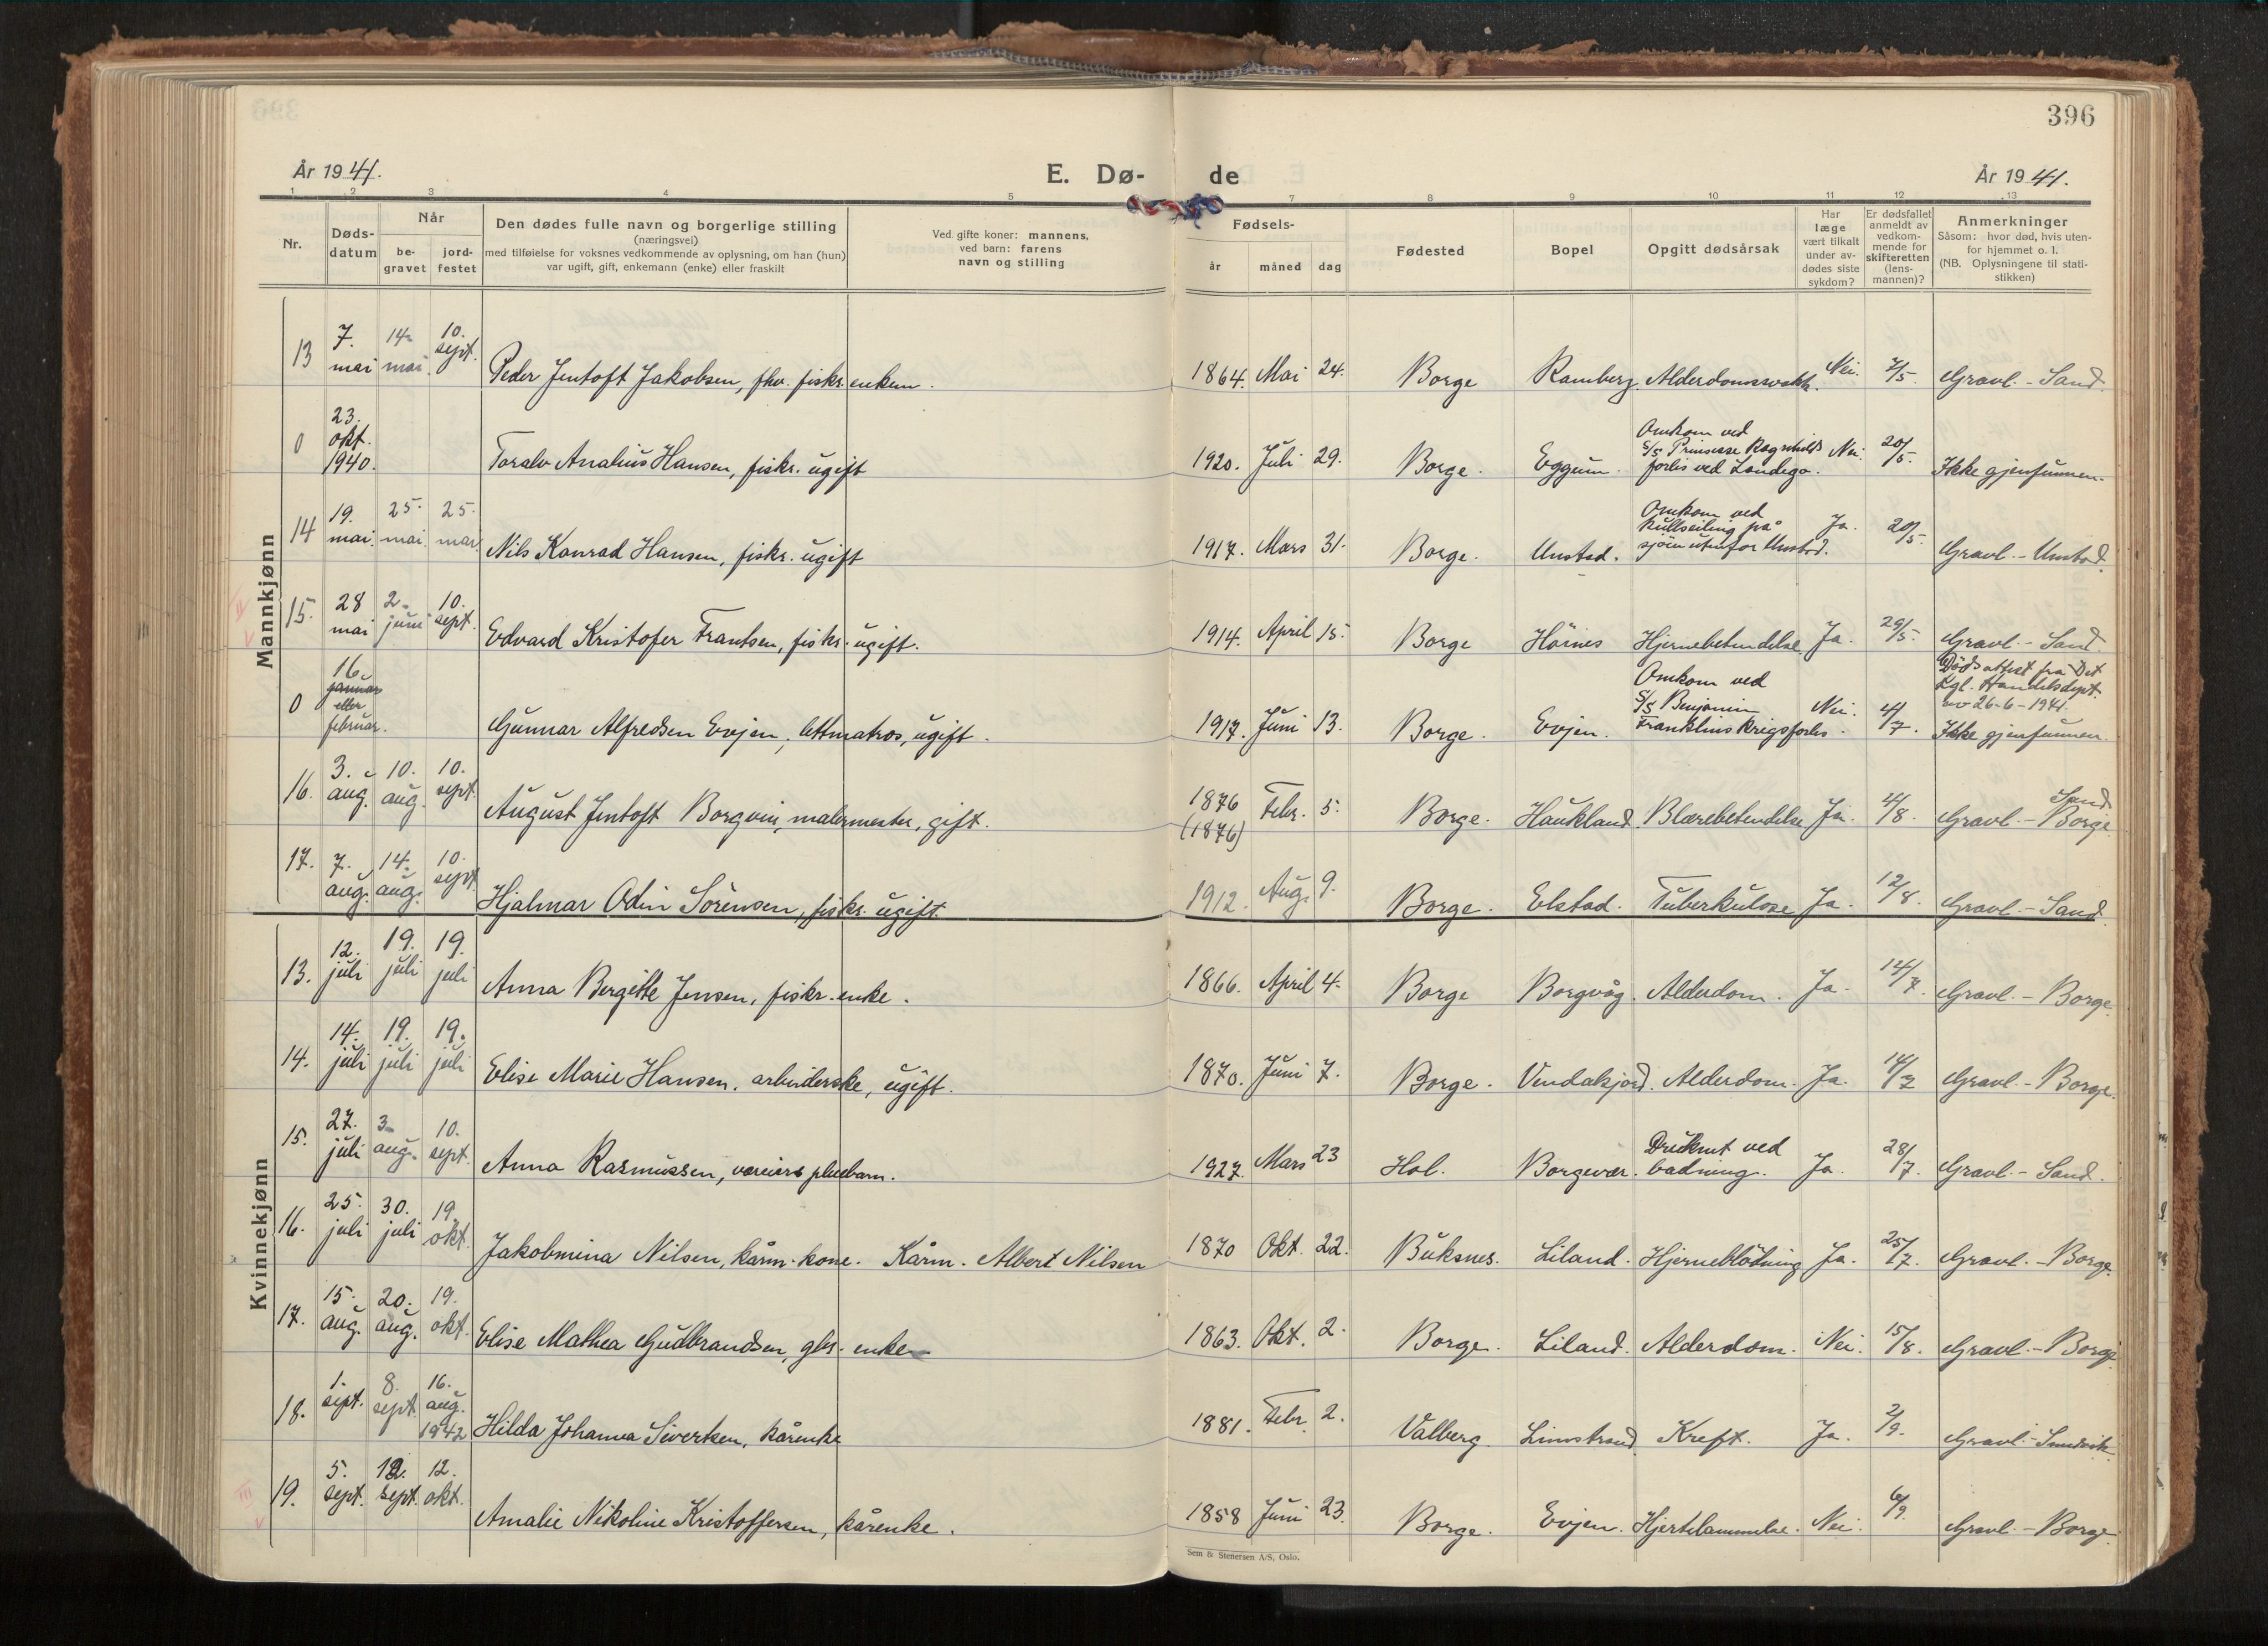 396
År 1941.
E. Dø-
de
År 1941.
1 2 3 4 5 7 8 9 10 11 12 13
Nr.
Døds-
datum
Når
be-
gravet
jord-
festet
Den dødes fulle navn og borgerlige stilling
(næringsvei)
med tilføielse for voksnes vedkommende av oplysning, om han (hun)
var ugift, gift, enkemann (enke) eller fraskilt
Ved gifte koner: mannens,
ved barn: farens
navn og stilling
Fødsels-
år
måned
dag
Fødested
Bopel
Opgitt dødsårsak
Har
læge
vært tilkalt
under av-
dødes siste
sykdom?
Er dødsfallet
anmeldt av
vedkom-
mende for
skifteretten
(lens-
mannen)?
Anmerkninger
Såsom: hvor død, hvis uten-
for hjemmet o. l.
(NB. Oplysningene til stati-
stikken)
Mannkjønn
13 7. mai 14. mai 10. sept. Peder Jentoft Jakobsen, fhv. fiskr. enkem. 1864. Mai 24. Borge Ramberg. Alderdomssvakh. Nei. 7/5. Gravl. - Sand.
0 23. okt. 1940. Toralv Analius Hansen, fiskr. ugift 1920. Juli 29. Borge. Eggum. Omkom ved
S/S Prinsesse Ragnhilds
forlis ved Landego. Nei. 20/5. Ikke gjenfunnen.
14 19. mai. 25. mai. 25. mai Nils Konrad Hansen, fiskr. ugift 1917. Mars 31. Borge. Unstad. Omkom ved
kullseiling på
sjöen utenfor Unstad. Ja. 20/5. Gravl. - Unstad.
15. 28 mai 2. juni 10. sept. Edvard Kristofer Frantsen, fiskr. ugift. 1914. April 15. Borge Hörnes Hjernebetendelse Ja. 29/5. Gravl. - Sand.
0 16. januar eller februar. Gunnar Alfredsen Evjen, lettmatros, ugift. 1917. Juni 13. Borge. Evjen. Omkom ved
S/S Benjamin
Franklins krigsforlis. Nei. 4/7. Dödsattest fra Det
Kgl. Handelsdept.
av 26-6-1941.
Ikke gjenfunnen.
16. 3. aug. 10. aug. 10. sept. August Jentoft Borgvin, malermester, gift. 1876
(1876) Febr. 5. Borge. Haukland. Blærebetendelse Ja. 4/8. Gravl. - Sand
Borge
17. 7. aug. 14. aug. 10. sept. Hjalmar Odin Sörensen, fiskr. ugift. 1912. Aug. 9. Borge. Elstad. Tuberkulose Ja. 12/8. Gravl. - Sand.
Kvinnekjønn
13. 12. juli 19. juli 19. juli Anna Bergitte Jensen, fiskr. enke. 1866. April 4. Borge Borgvåg. Alderdom. Ja. 14/7. Gravl. - Borge.
14. 14. juli 19. juli 19. juli Elise Marie Hansen. arbeiderske, ugift. 1870. Juni 7. Borge. Vendakjord. Alderdom. Ja. 14/7 Gravl. - Borge.
15. 27. juli 3. aug. 10. sept. Anna Rasmussen, væreiers pleiebarn. 1927. Mars 23 Hol. Borgevær. Druknet ved
badning. Ja. 28/7. Gravl. - Sand.
16. 25. juli 30. juli 19. okt. Jakobmina Nilsen, kårm. kone. Kårm. Albert Nilsen 1870 Okt. 22. Buksnes. Liland. Hjerneblödning Ja. 25/7. Gravl. - Borge.
17. 15. aug. 20. aug. 19. okt. Elise Mathea Gudbrandsen, gbr. enke 1863. Okt. 2. Borge. Liland. Alderdom. Nei. 15/8. Gravl. - Borge.
18. 1. sept. 8. sept. 16. aug. 1942 Hilda Johanna Sivertsen, kårenke 1881. Febr. 2. Valberg. Limstrand. Kreft. Ja. 2/9. Gravl. -
19. 5. sept. 12. sept. 12. okt. Amalie Nikoline Kristoffersen, kårenke. 1858 Juni 23. Borge. Evjen. Hjertelammelse. Nei. 6/9. Gravl. - Borge.
Sem & Stenersen A/S, Oslo.